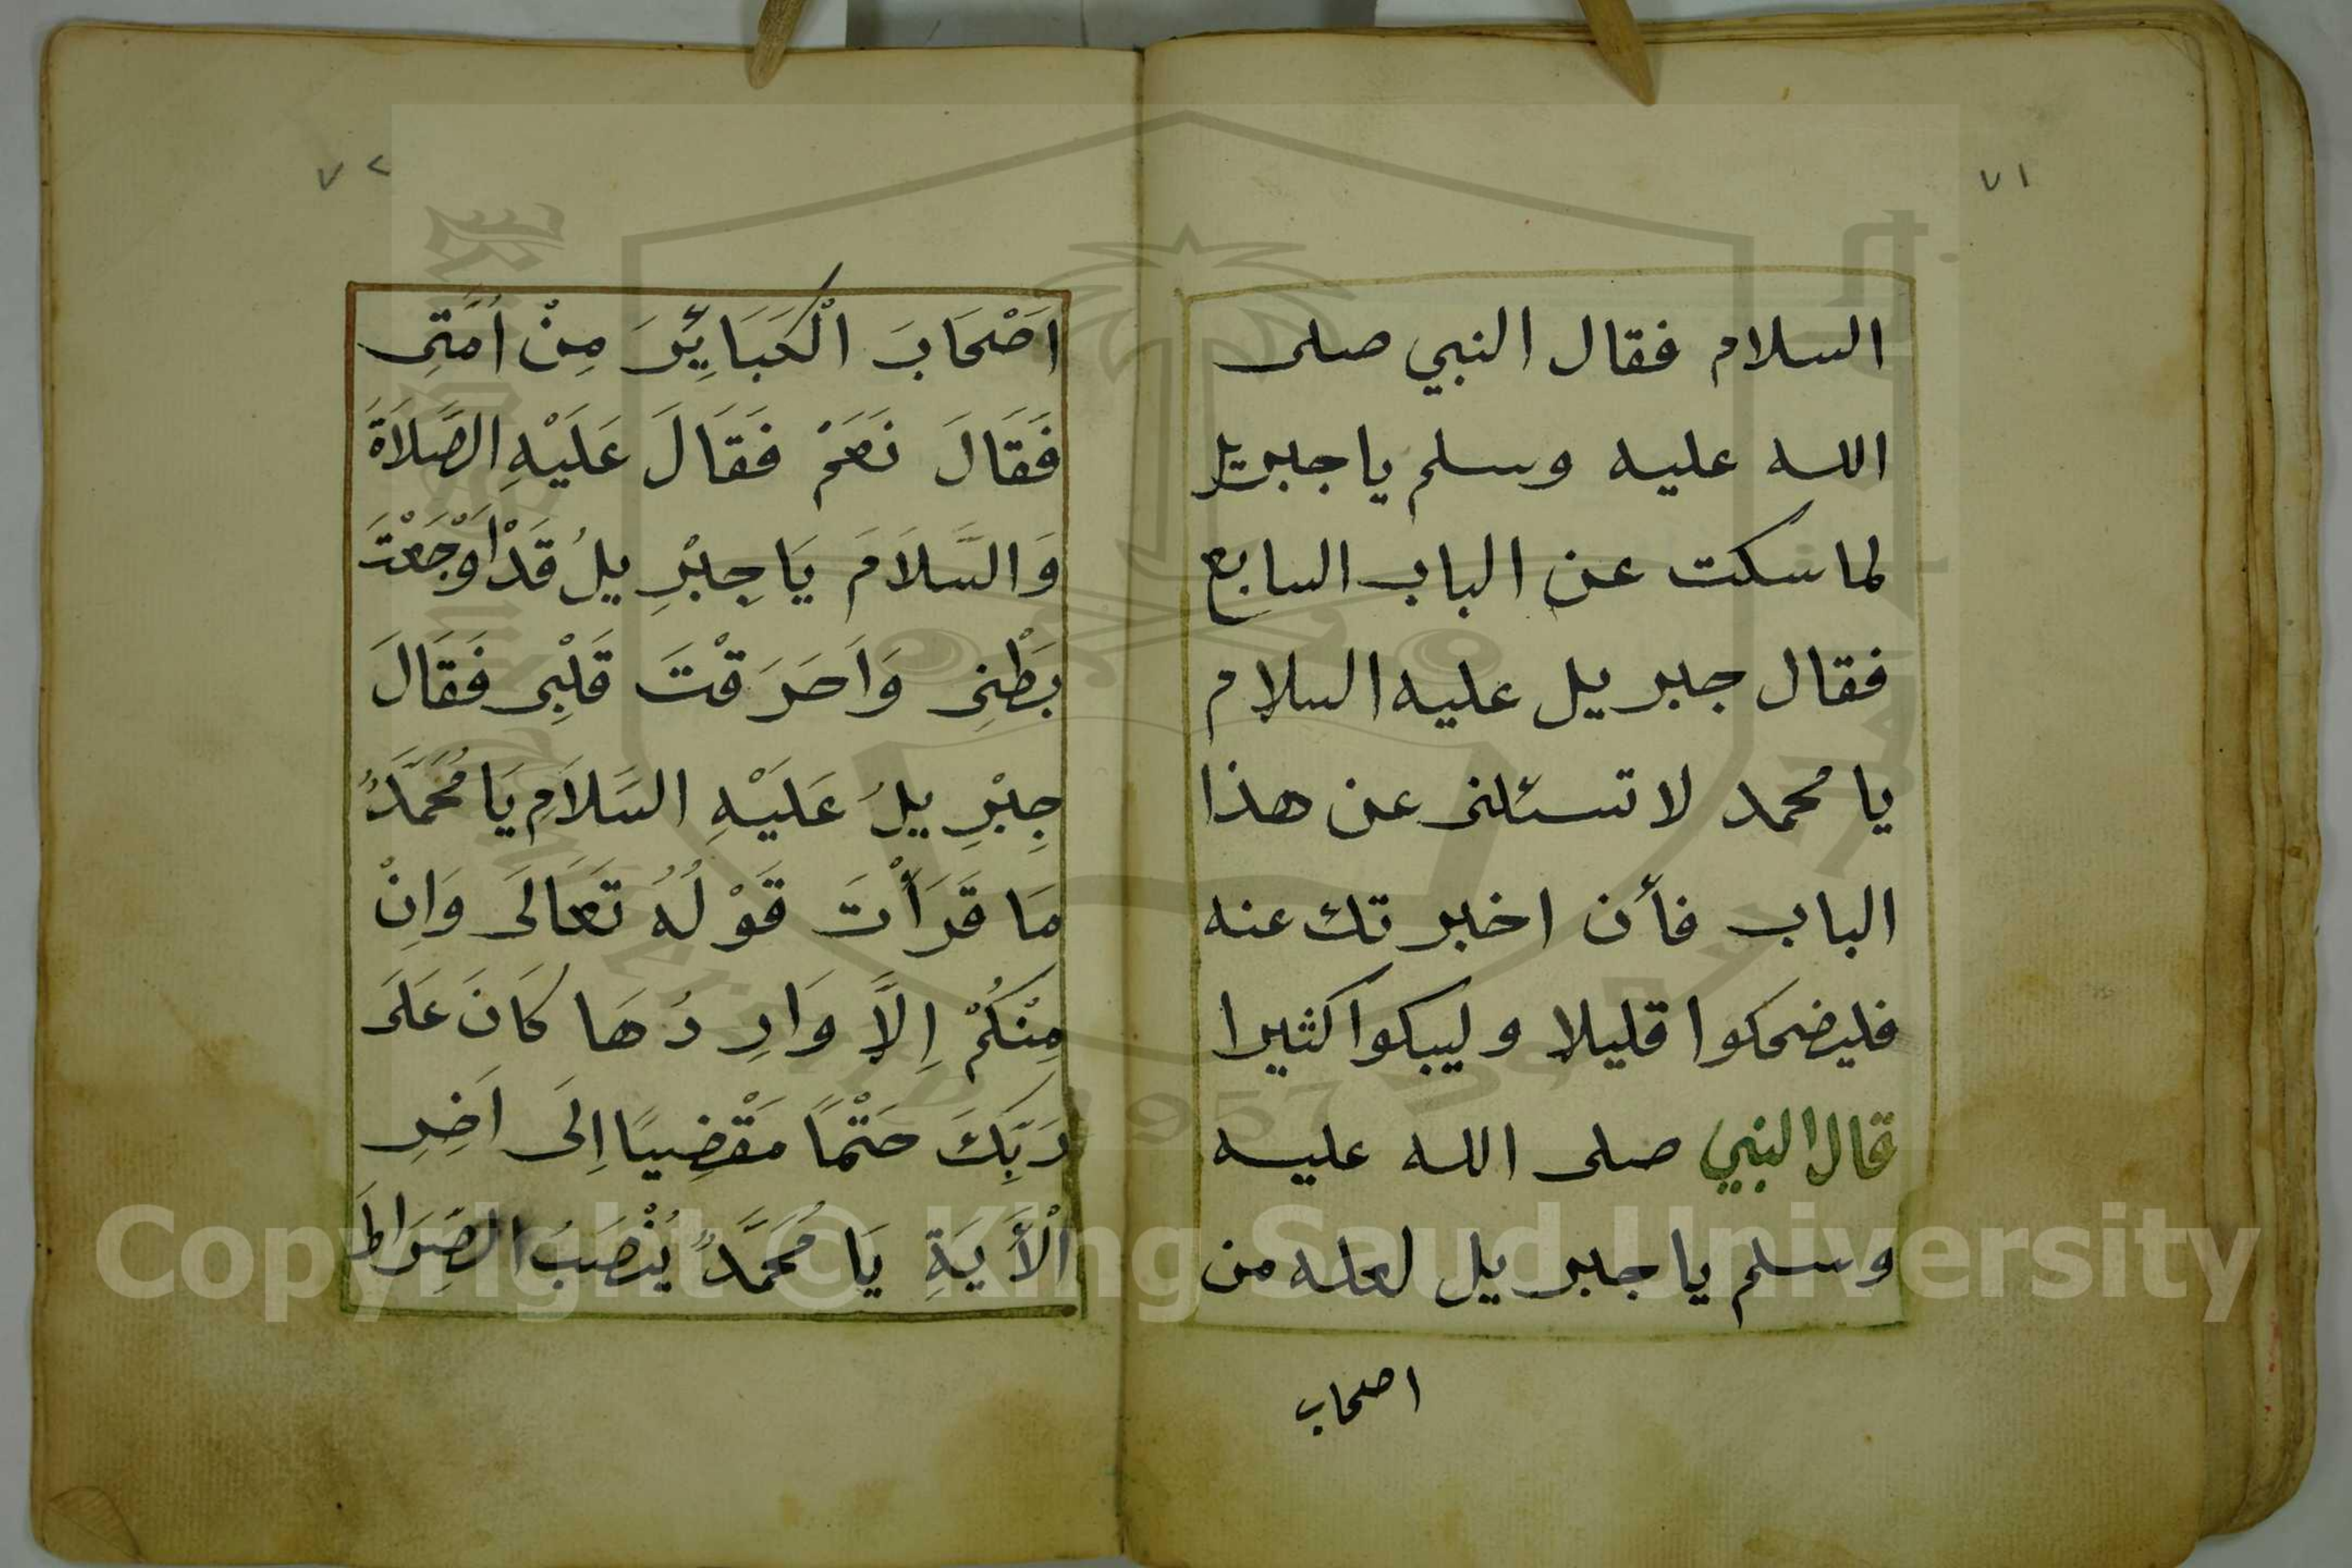 ٧١
السلام فقال النبي صلى
الله عليه وسلم يا جبريل
لما سكت عن الباب السابع
فقال جبريل عليه السلام
يا محمد لا تسئلنى عن هذا
الباب فأن اخبرتك عنه
فليضحكوا قليلا وليبكوا كثيرا
قال النبي صلى الله عليه
وسلم يا جبريل لعله من
اصحاب
٧٢
اَصْحَابَ الْكَبَائِرَ مِنْ اُمَّتِى
فَقَالَ نَعَمْ فَقَالَ عَلَيْهِ الصَّلَاةَ
وَالسَّلَامَ يَا جِبْرِيلُ قَدْ اَوْجَعْتَ
بَطْنِى وَاَحَرَقْتَ قَلْبِى فَقَالَ
جِبْرِيلُ عَلَيْهِ السَّلَامِ يَا مُحَمَّدٌ
مَا قَرَأْتَ قَوْلُهُ تَعَالَى وَاِنْ
مِنْكُمْ اِلَّا وَارِدُهَا كَانَ عَلَى
رَبِّكَ حَتْمًا مَقْضِيًا اِلَى اَخِرِ
الْأَيَةِ يَا مُحَمَّدٌ يُنْصَبُ الصِّرَاطَ
Copyright © King Saud University
1957